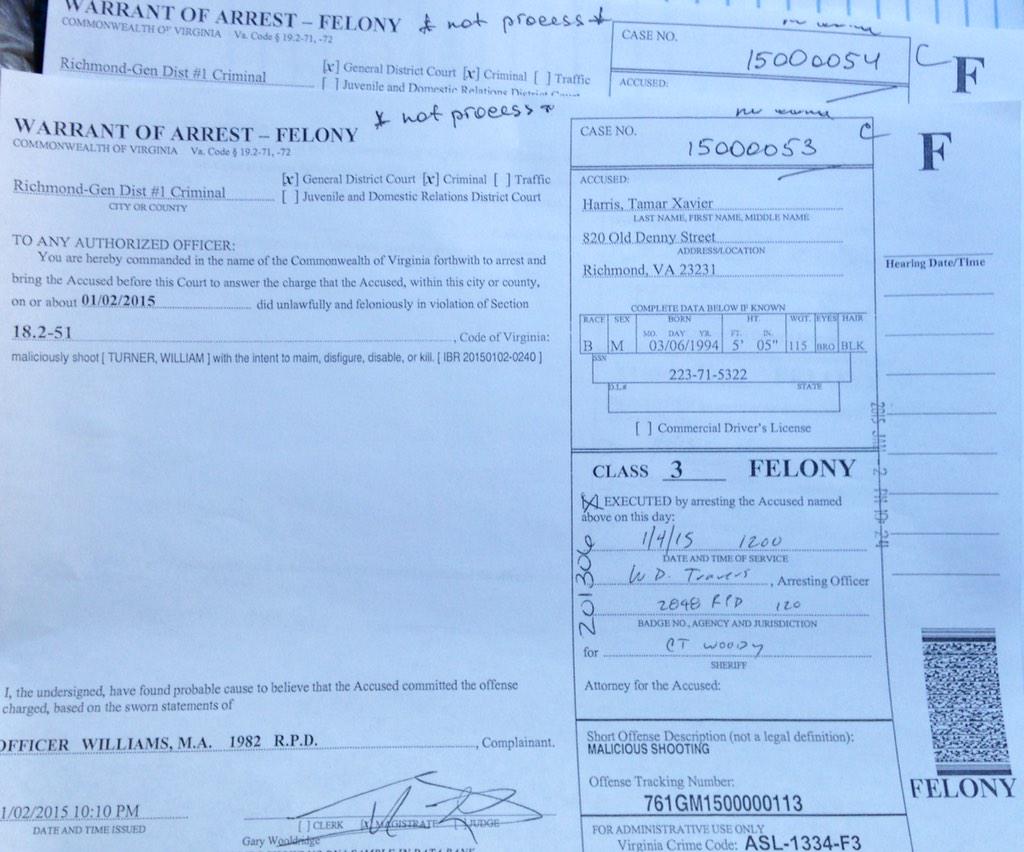 WARRANT OF ARREST – FELONY * not process *
COMMONWEALTH OF VIRGINIA Va. Code § 19.2-71, -72
Richmond-Gen Dist #1 Criminal
[x] General District Court [x] Criminal [ ] Traffic
[ ] Juvenile and Domestic Relations District Court
CASE NO.
15000054
C
F
ACCUSED:
WARRANT OF ARREST – FELONY * not process *
COMMONWEALTH OF VIRGINIA Va. Code § 19.2-71, -72
Richmond-Gen Dist #1 Criminal
CITY OR COUNTY
[x] General District Court [x] Criminal [ ] Traffic
[ ] Juvenile and Domestic Relations District Court
TO ANY AUTHORIZED OFFICER:
You are hereby commanded in the name of the Commonwealth of Virginia forthwith to arrest and
bring the Accused before this Court to answer the charge that the Accused, within this city or county,
on or about 01/02/2015 did unlawfully and feloniously in violation of Section
18.2-51 , Code of Virginia:
maliciously shoot [ TURNER, WILLIAM ] with the intent to maim, disfigure, disable, or kill. [ IBR 20150102-0240 ]
I, the undersigned, have found probable cause to believe that the Accused committed the offense
charged, based on the sworn statements of
OFFICER WILLIAMS, M.A. 1982 R.P.D. , Complainant.
1/02/2015 10:10 PM
DATE AND TIME ISSUED
[ ] CLERK [x] MAGISTRATE [ ] JUDGE
Gary Wooldridge
CASE NO.
15000053
C
F
ACCUSED:
Harris, Tamar Xavier
LAST NAME, FIRST NAME, MIDDLE NAME
820 Old Denny Street
ADDRESS/LOCATION
Richmond, VA 23231
COMPLETE DATA BELOW IF KNOWN
RACE SEX BORN HT. WGT. EYES HAIR
MO. DAY YR. FT. IN.
B M 03/06/1994 5' 05" 115 BRO BLK
SSN
[SSN omitted]
D.L.# STATE
[ ] Commercial Driver's License
CLASS 3 FELONY
[x] EXECUTED by arresting the Accused named
above on this day:
1/4/15 1200
DATE AND TIME OF SERVICE
W D. Travers , Arresting Officer
2848 RPD 120
BADGE NO., AGENCY AND JURISDICTION
for CT WOODY
SHERIFF
201306
Attorney for the Accused:
Short Offense Description (not a legal definition):
MALICIOUS SHOOTING
Offense Tracking Number:
761GM1500000113
FOR ADMINISTRATIVE USE ONLY
Virginia Crime Code: ASL-1334-F3
Hearing Date/Time
FELONY